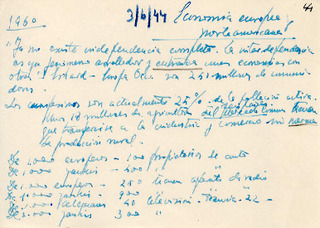 44
1960
3/6/44
Economía europea
y norteamericana
"Ya no existe independencia completa. La interdependencia
es un fenómeno arrollador y entrañan unas economías con
otras. Europa Occ. va 260 millones de consumi-
dores.
Los campesinos son actualmente 25% de la población activa.
Unos 18 millones de agricultores del Mercado Común tienen
que transferirse a la industria y comercio sin
la producción rural.
De 1.000 europeos - 100 propietarios de auto
De 1000 yankis - 400
De 1.000 europeos - 250 tienen aparato de radio
De 1.000 yankis - 900
De 1.000 europeos 40 televisión - Francia - 22 -
De 1.000 yankis 300 "